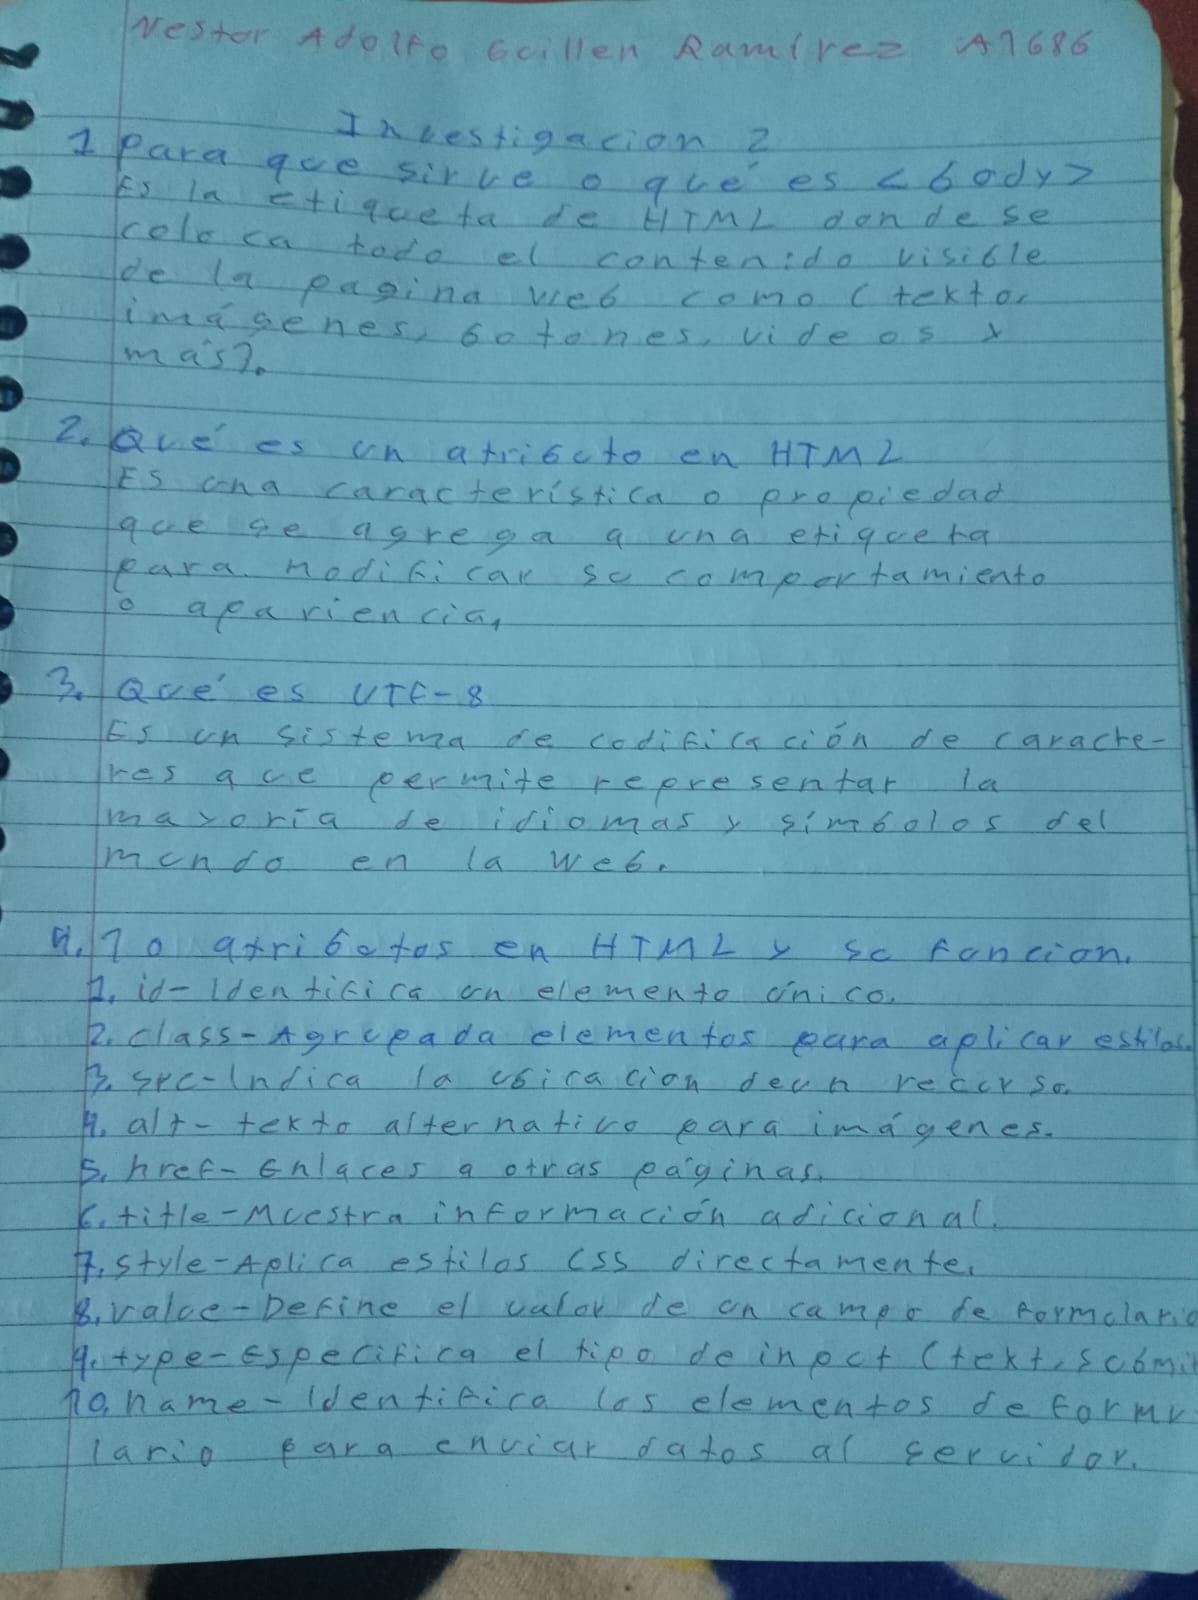 Nestor Adolfo Guillen Ramírez A1686
Investigacion 2
1 Para que sirve o qué es <body>
Es la etiqueta de HTML donde se
coloca todo el contenido visible
de la pagina web como (texto,
imágenes, botones, videos y
más).
2. Qué es un atributo en HTML
Es una característica o propiedad
que se agrega a una etiqueta
para modificar su comportamiento
o apariencia,
3. Qué es UTF-8
Es un sistema de codificación de caracte-
res que permite representar la
mayoría de idiomas y símbolos del
mundo en la web.
4. 10 atributos en HTML y su funcion.
1. id- Identifica un elemento único.
2. class- Agrupada elementos para aplicar estilos.
3. src- Indica la ubicacion de un recurso.
4. alt- texto alternativo para imágenes.
5. href- Enlaces a otras páginas.
6. title- Muestra información adicional.
7. style- Aplica estilos CSS directamente.
8. value- Define el valor de un campo de formulario
9. type- Especifica el tipo de input (text, submit
10. name- Identifica los elementos de formu
lario para enviar datos al servidor.